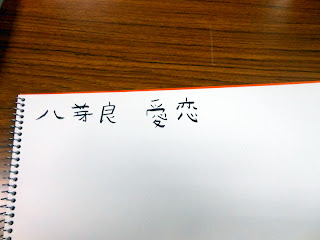 八芽良 愛恋